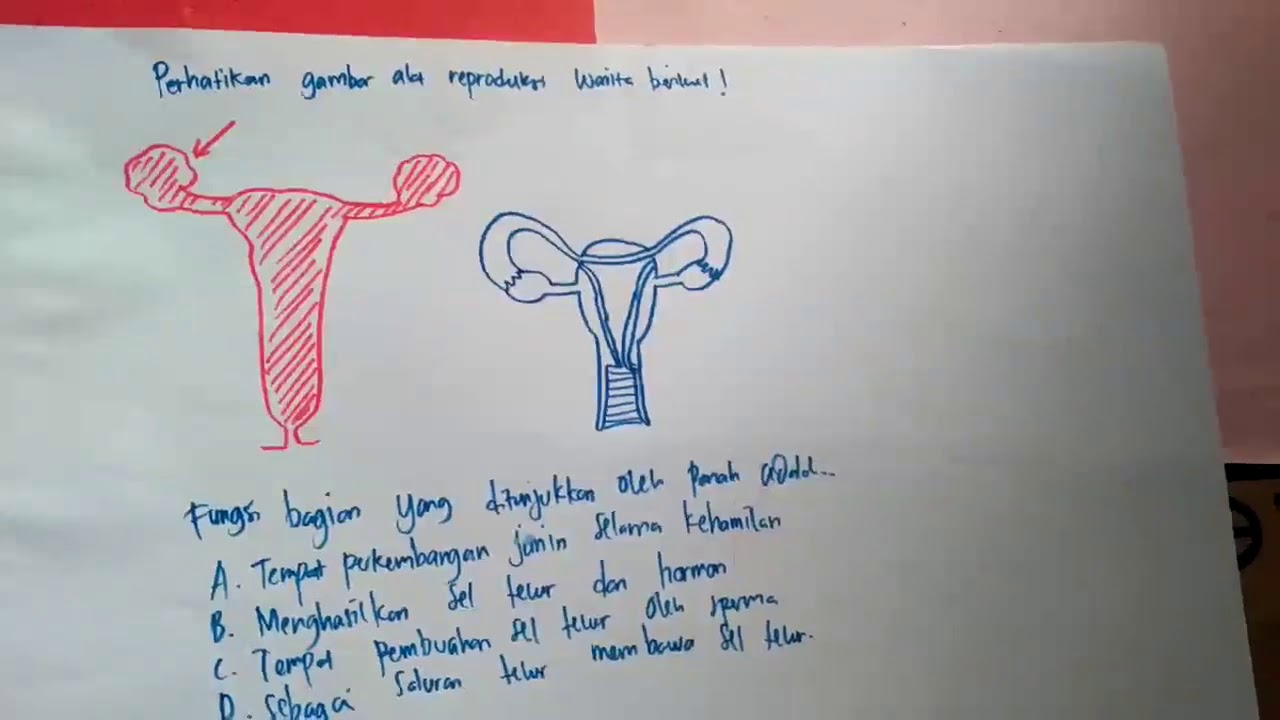 Perhatikan gambar alat reproduksi wanita berikut!
Fungsi bagian yang ditunjukkan oleh panah adalah...
A. Tempat perkembangan janin selama kehamilan
B. Menghasilkan sel telur dan hormon
C. Tempat pembuahan sel telur oleh sperma
D. Sebagai saluran telur membawa sel telur.